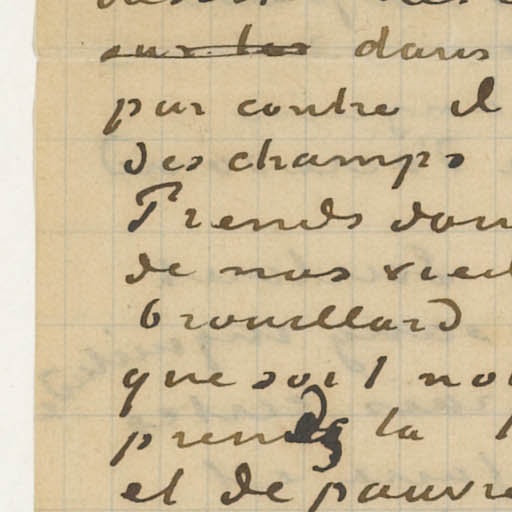 sur les dans
par contre il
des champs
Prends don
de nos vieil
brouillard
que soit no
prends la
et de pauvre